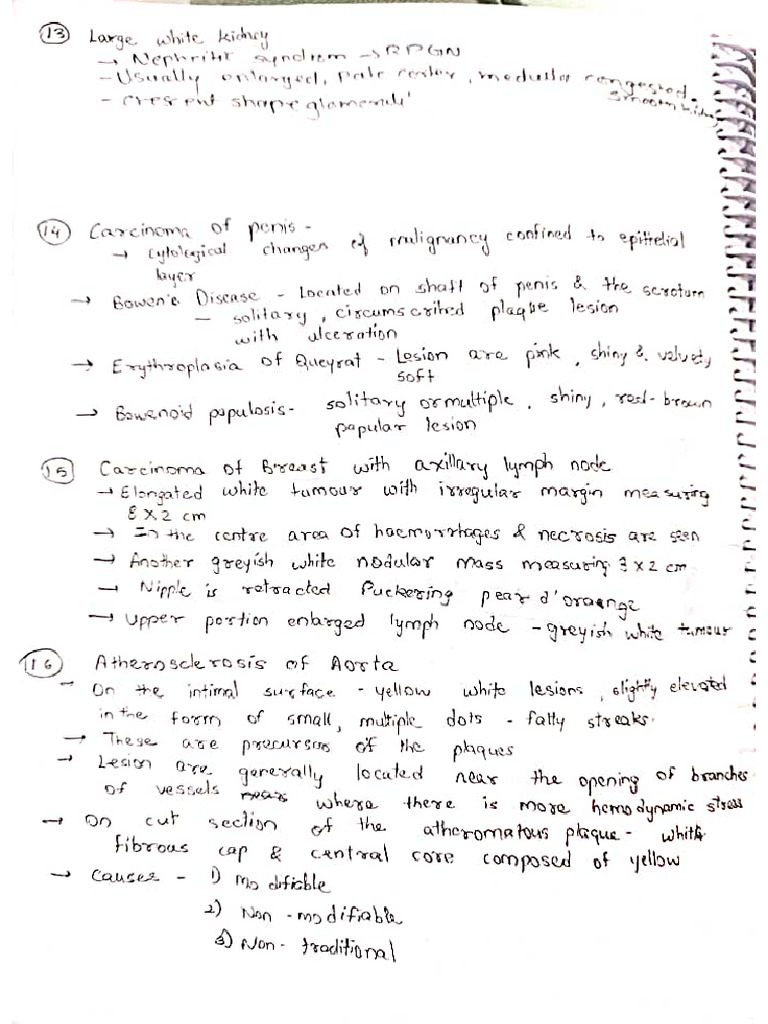 13 Large white kidney
→ Nephritic syndrom → RPGN
- Usually enlarged, pale cortex, medulla congested.
smooth kidney
- crescent shape glomeruli
14 Carcinoma of penis -
→ cytological changes of malignancy confined to epithelial
layer
→ Bowen's Disease - Located on shaft of penis & the scrotum
- solitary, circumscribed plaque lesion
with ulceration
→ Erythroplasia of Queyrat - Lesion are pink, shiny & velvety
soft
→ Bowenoid populosis - solitary or multiple, shiny, red-brown
popular lesion
15 Carcinoma of Breast with axillary lymph node
→ Elongated white tumour with irregular margin measuring
8 X 2 cm
→ In the centre area of haemorrhages & necrosis are seen
→ Another greyish white nodular mass measuring 3 x 2 cm
→ Nipple is retracted Puckering pear d'oraenge
→ Upper portion enlarged lymph node - greyish white tumour
16 Atherosclerosis of Aorta
- On the intimal surface - yellow white lesions, slightly elevated
in the form of small, multiple dots - fatty streaks.
→ These are precursors of the plaques
→ Lesion are generally located near the opening of branches
of vessels where there is more hemodynamic stress
→ On cut section of the atheromatous plaque - white
fibrous cap & central core composed of yellow
→ Causes - 1) Modifiable
2) Non-modifiable
3) Non-traditional